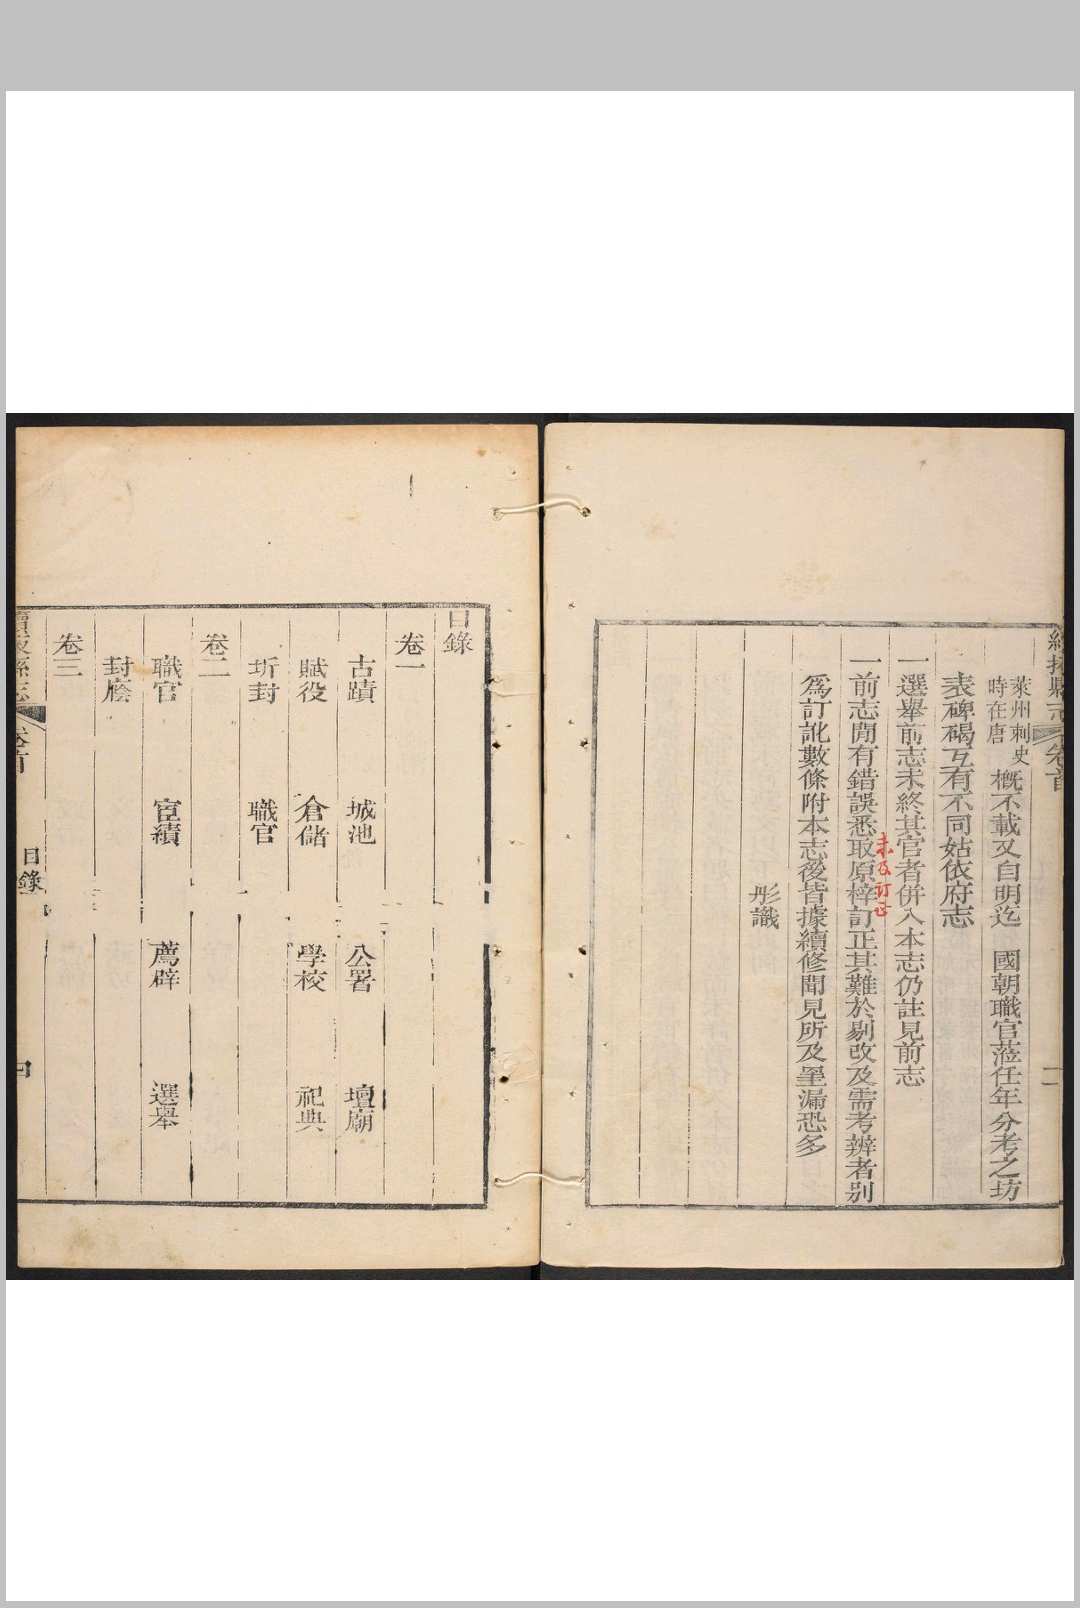 續掖縣志 卷首 二
萊州刺史時在唐 概不載又自明迄 國朝職官蒞任年分考之坊
表碑碣互有不同姑依府志
一選舉前志未終其官者併入本志仍註見前志
一前志間有錯誤悉取原梓訂正其難於剔改及需考辨者別
未及訂正
爲訂訛數條附本志後皆據續修聞見所及罣漏恐多
彤識
目錄
卷一
古蹟 城池 公署 壇廟
賦役 倉儲 學校 祀典
圻封 職官
卷二
職官 宦績 薦辟 選舉
封廕
卷三
續掖縣志 卷首 目錄 四